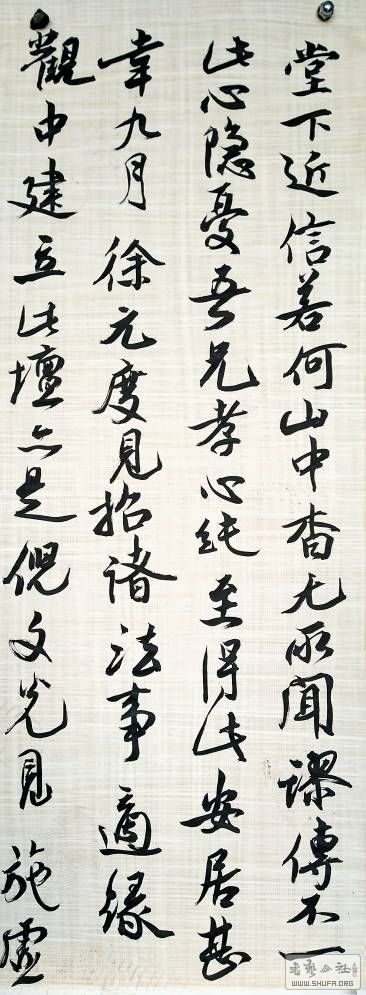 堂下近信若何山中杳无所闻謬傳不一
此心隐憂吾兄孝心純至得此安居甚
幸九月徐元度見招諸法事適緣
觀中建立此壇亦是倪文光見施虛
書藝公社
WWW.SHUFA.ORG